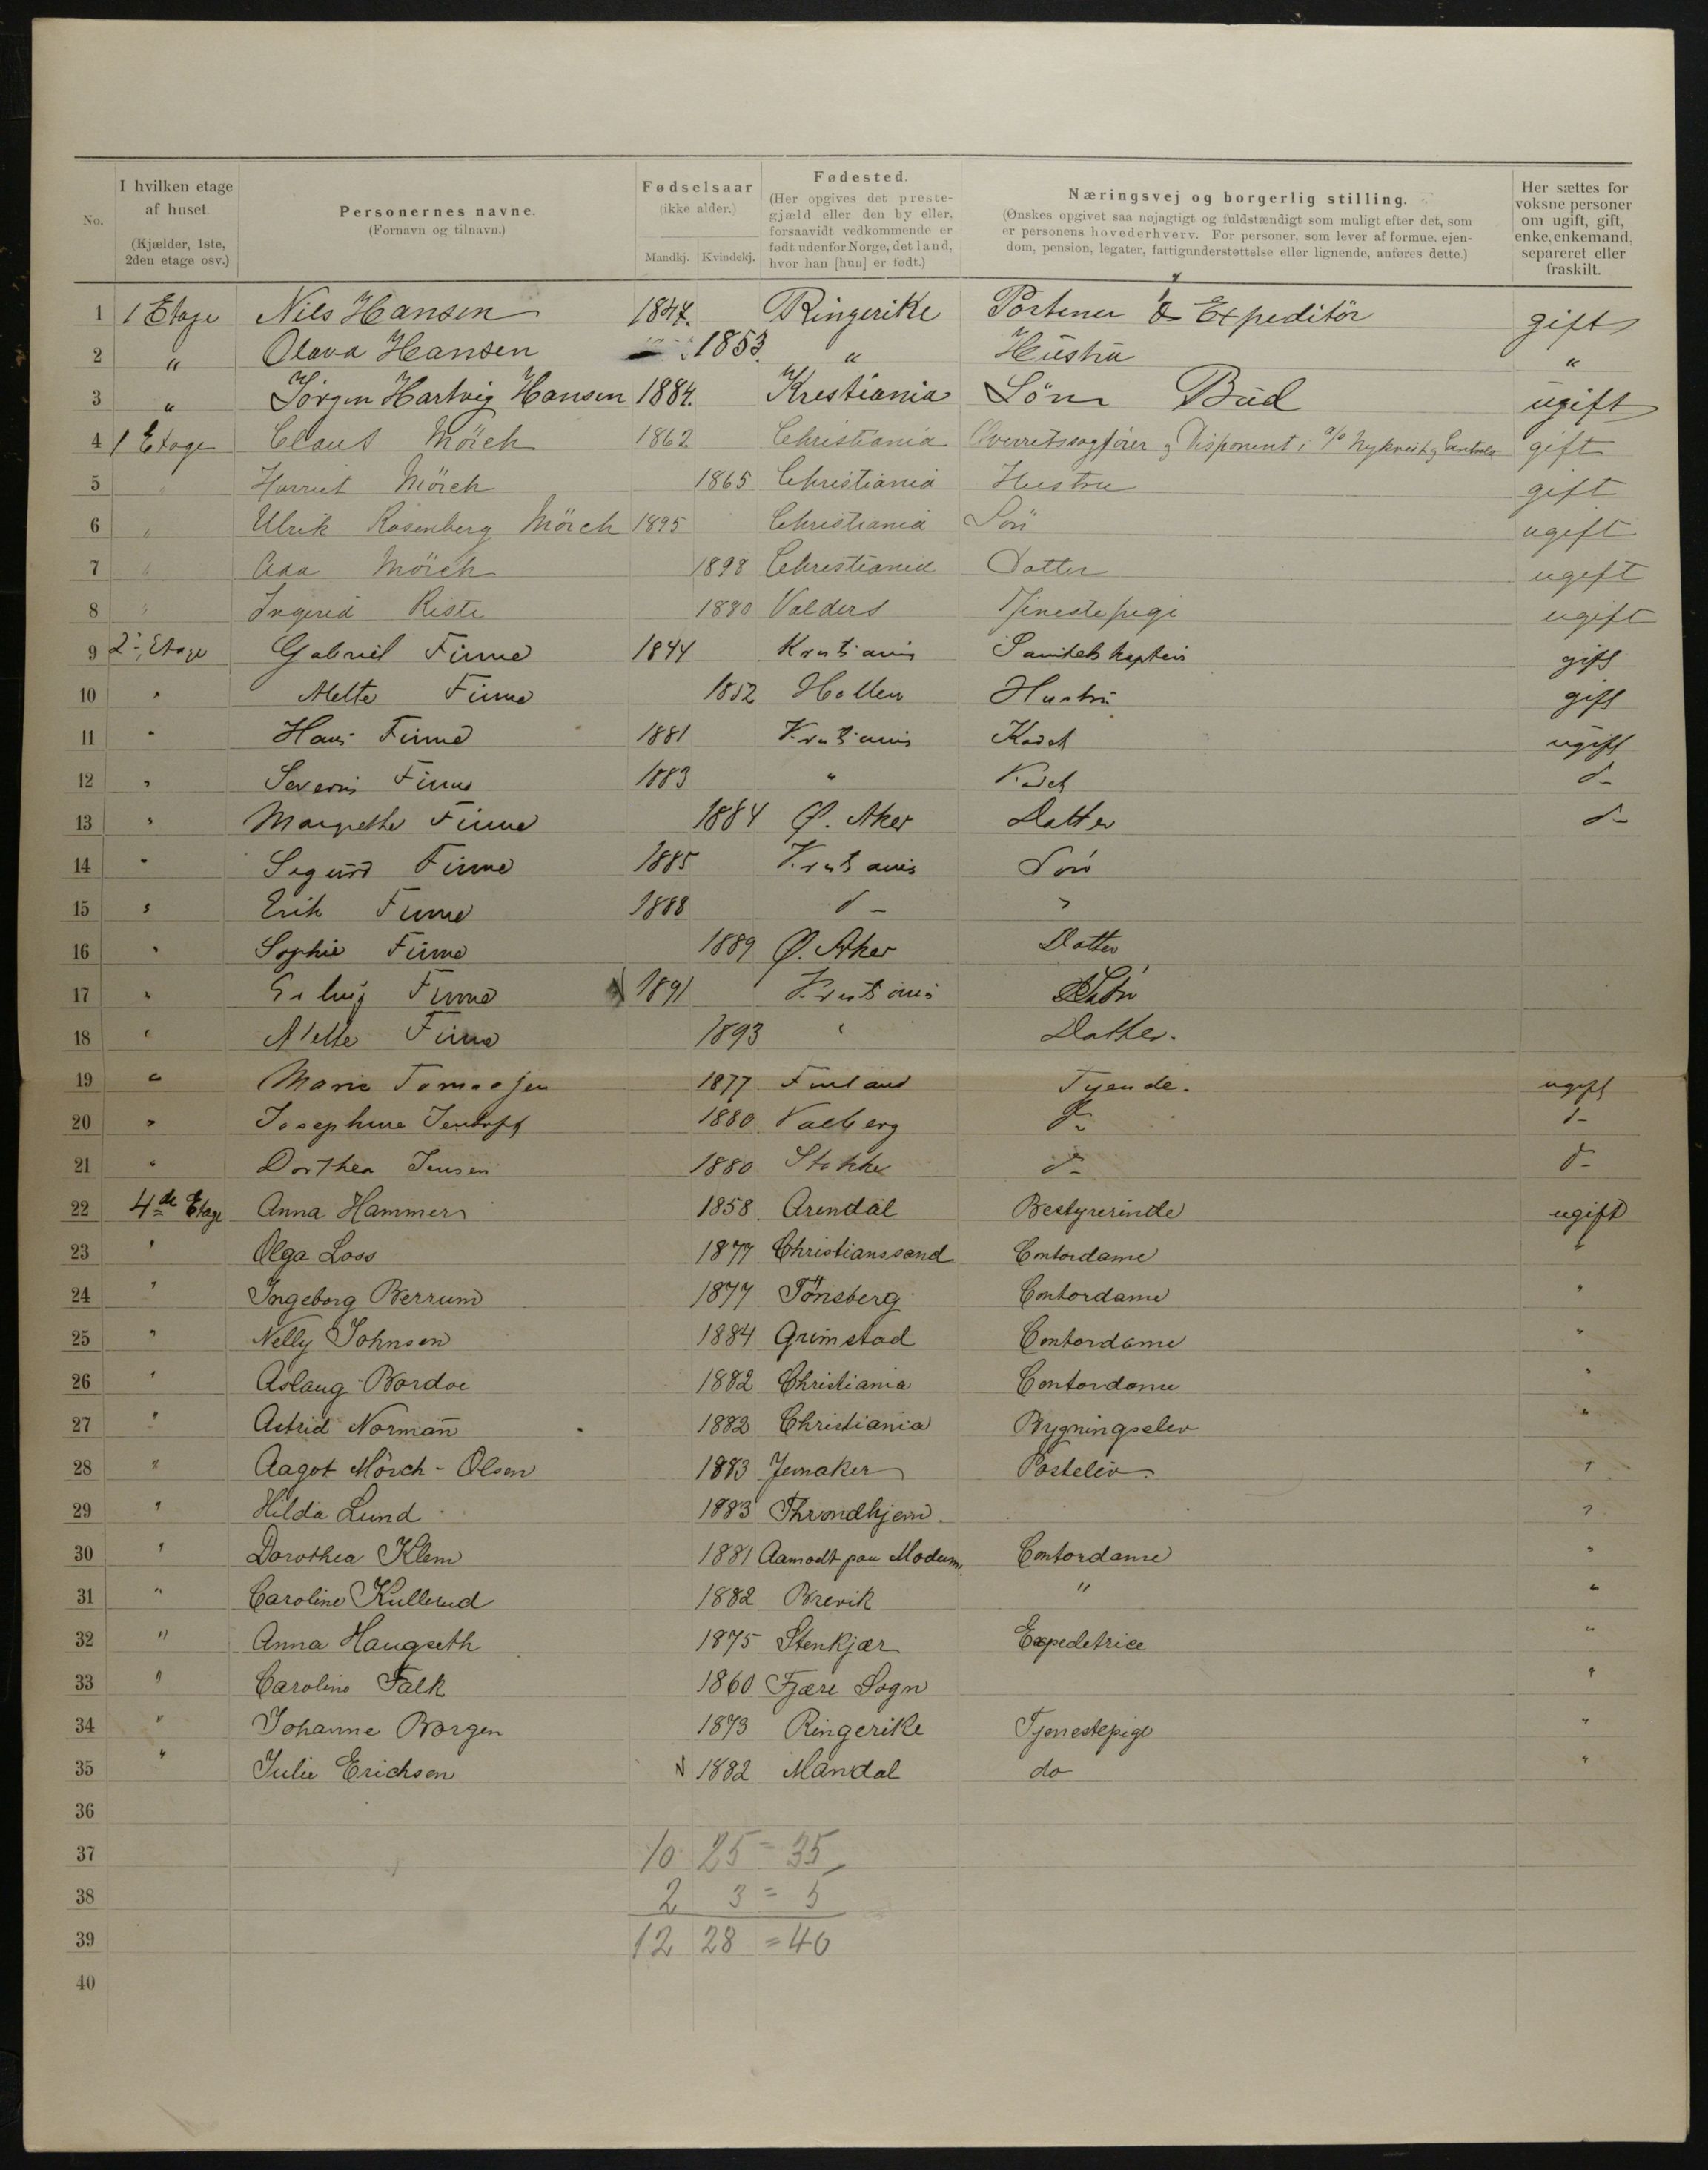 I hvilken etage af huset. (Kjælder, 1ste, 2den etage osv.)
No.
Personernes navne. (Fornavn og tilnavn.)
Fødselsaar (ikke alder.) Mandkj. Kvindekj.
Fødested. (Her opgives det prestegjæld eller den by eller, forsaavidt vedkommende er født udenfor Norge, det land, hvor han [hun] er født.)
Næringsvej og borgerlig stilling. (Ønskes opgivet saa nøjagtigt og fuldstændigt som muligt efter det, som er personens hovederhverv. For personer, som lever af formue, ejendom, pension, legater, fattigunderstøttelse eller lignende, anføres dette.)
Her sættes for voksne personer om ugift, gift, enke, enkemand, separeret eller fraskilt.
1 1 Etage Nils Hansen 1847. Ringerike Portner & Expeditör gift
2 " Olava Hansen 1853. " Hustru "
3 " Jörgen Hartvig Hansen 1884. Kristiania Sön Bud ugift
4 1 Etage Claus Mörch 1862 Christiania Overretssagförer og Disponent i a/s gift
5 " Harriet Mörch 1865 Christiania Hustru gift
6 " Ulrik Rosenberg Mörch 1895 Christiania Sön ugift
7 " Ada Mörch 1898 Christiania Datter ugift
8 " Ingerid Riste 1880 Valders Tjenestepige ugift
9 2. Etage Gabriel Finne 1844 Kristiania Sanitetskaptein gift
10 " Alette Finne 1852 Hollen Hustru gift
11 " Hans Finne 1881 Kristiania Kadet ugift
12 " Severin Finne 1883 " Kadet d-
13 " Margrethe Finne 1884 Ø. Aker Datter d-
14 " Sigurd Finne 1885 Kristiania Sön
15 " Erik Finne 1888 d- "
16 " Sophie Finne 1889 Ø. Aker Datter
17 " Erling Finne 1891 Kristiania Sön
18 " Alette Finne 1893 " Datter.
19 " Marie 1877 Finland Tyende. ugift
20 " Josephine 1880 Vaaberg d- d-
21 " Dorthea Jensen 1880 Stokke d- d-
22 4de Etage Anna Hammer 1858 Arendal Bestyrerinde ugift
23 " Olga Loss 1877 Christianssand Contordame "
24 " Ingeborg Berrum 1877 Tönsberg Contordame "
25 " Nelly Johnsen 1884 Grimstad Contordame "
26 " Aslaug Bordoe 1882 Christiania Contordame "
27 " Astrid Normann 1882 Christiania Bygningselev "
28 " Aagot Mörch-Olsen 1883 Jevnaker Postelev. "
29 " Hilda Lund 1883 Throndhjem. "
30 " Dorothea Klem 1881 Aamodt paa Modum. Contordame "
31 " Caroline Kullerud 1882 Brevik " "
32 " Anna Haugseth 1875 Stenkjær Expeditrice "
33 " Caroline Falk 1860 Fjære Sogn "
34 " Johanne Borgen 1873 Ringerike Tjenestepige "
35 " Julie Erichsen 1882 Mandal do "
36
37 10 25 = 35
38 2 3 = 5
39 12 28 = 40
40